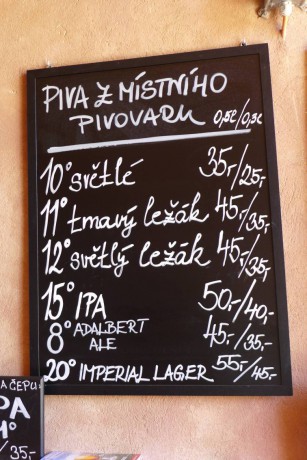 PIVA Z MÍSTNÍHO
PIVOVARU 0,5l/0,3l
10° světlé 35,-/25,-
11° tmavý ležák 45,-/35,-
12° světlý ležák 45,-/35,-
15° IPA 50,-/40,-
8° ADALBERT ALE 45,-/35,-
20° IMPERIAL LAGER 55,-/45,-
A ČEPU:
PA